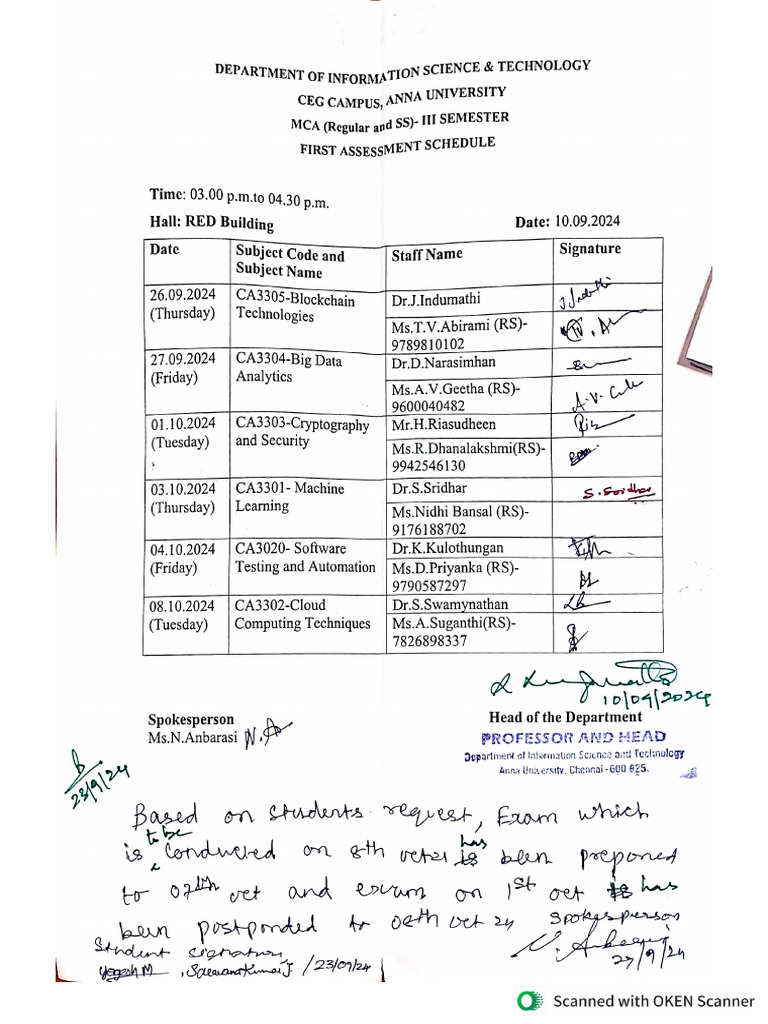 DEPARTMENT OF INFORMATION SCIENCE & TECHNOLOGY
CEG CAMPUS, ANNA UNIVERSITY
MCA (Regular and SS)- III SEMESTER
FIRST ASSESSMENT SCHEDULE
Time: 03.00 p.m.to 04.30 p.m.
Hall: RED Building Date: 10.09.2024
Date Subject Code and Subject Name Staff Name Signature
26.09.2024 (Thursday) CA3305-Blockchain Technologies Dr.J.Indumathi
Ms.T.V.Abirami (RS)- 9789810102
27.09.2024 (Friday) CA3304-Big Data Analytics Dr.D.Narasimhan
Ms.A.V.Geetha (RS)- 9600040482
01.10.2024 (Tuesday) CA3303-Cryptography and Security Mr.H.Riasudheen
Ms.R.Dhanalakshmi(RS)- 9942546130
03.10.2024 (Thursday) CA3301- Machine Learning Dr.S.Sridhar S. Sridhar
Ms.Nidhi Bansal (RS)- 9176188702
04.10.2024 (Friday) CA3020- Software Testing and Automation Dr.K.Kulothungan
Ms.D.Priyanka (RS)- 9790587297
08.10.2024 (Tuesday) CA3302-Cloud Computing Techniques Dr.S.Swamynathan
Ms.A.Suganthi(RS)- 7826898337
10/09/2024
Spokesperson Head of the Department
Ms.N.Anbarasi
PROFESSOR AND HEAD
Department of Information Science and Technology
Anna University, Chennai - 600 025.
23/9/24
Based on students request, Exam which
is to be Conducted on 8th oct 21 has been preponed
to 07th oct and exam on 1st oct has
been postponded to 08th oct 24 Spokesperson
Student signation
Yogesh M, Saravana Kumar J /23/09/24
23/9/24
Scanned with OKEN Scanner